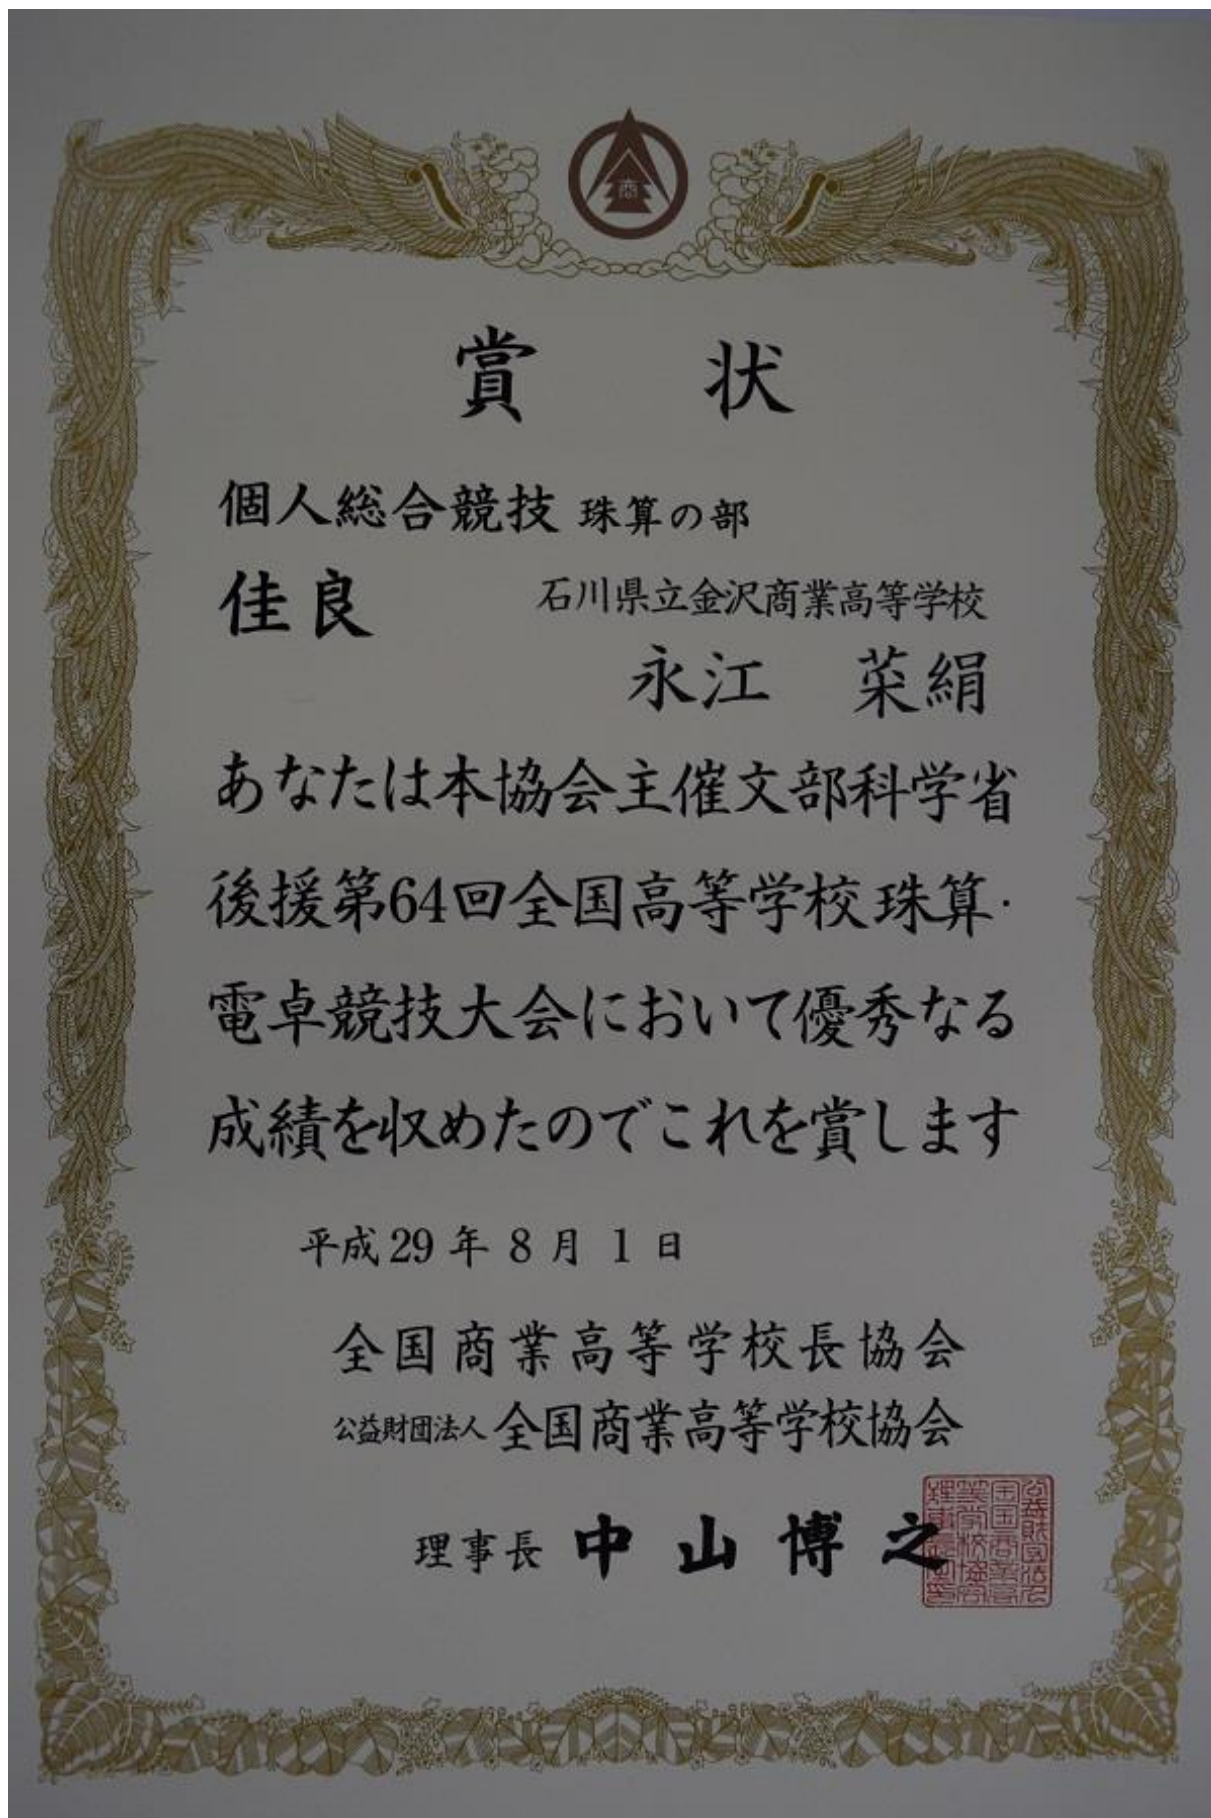 商
賞状
個人総合競技 珠算の部
佳良 石川県立金沢商業高等学校
永江 菜絹
あなたは本協会主催文部科学省
後援第64回全国高等学校珠算・
電卓競技大会において優秀なる
成績を収めたのでこれを賞します
平成29年8月1日
全国商業高等学校長協会
公益財団法人 全国商業高等学校協会
理事長 中山博之